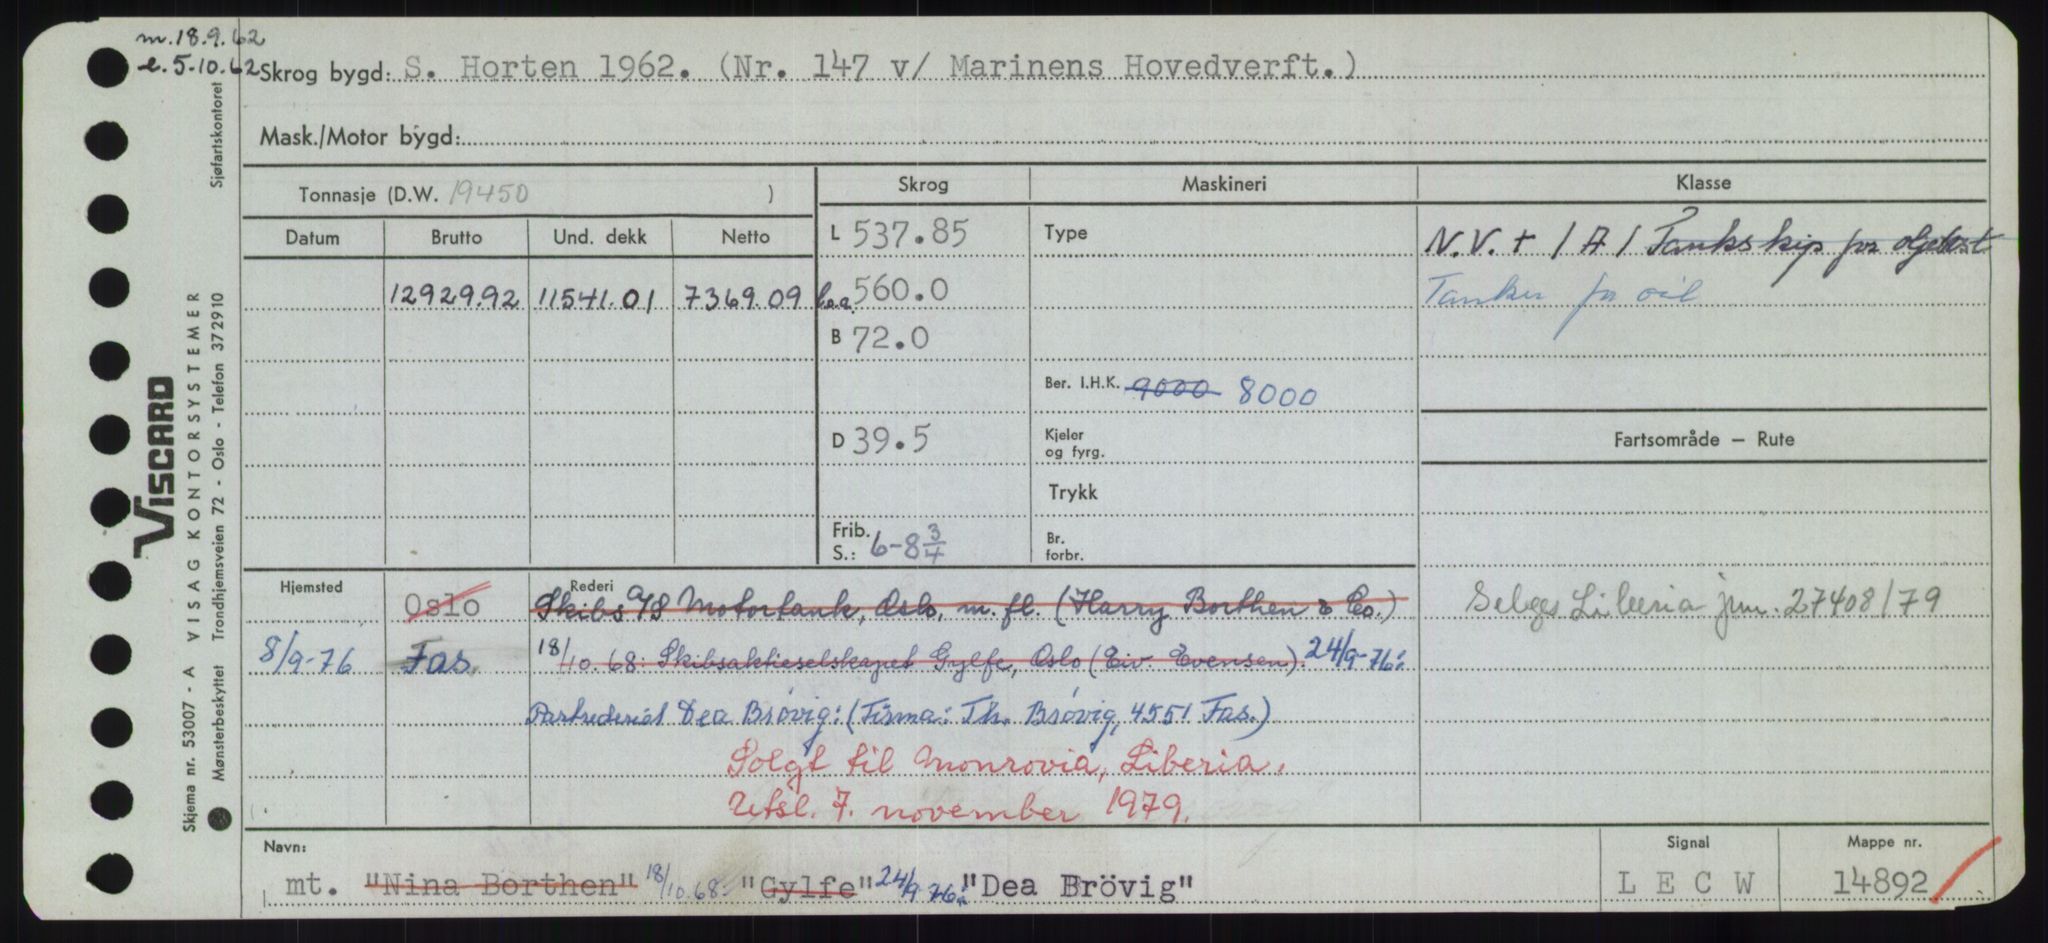 m. 18.9.62
e. 5.10.62
Skrog bygd: S. Horten 1962. (Nr. 147 v/ Marinens Hovedverft.)
Mask./Motor bygd:
Tonnasje (D.W. 19450 )
Skrog
Maskineri
Klasse
Datum Brutto Und. dekk Netto
L 537.85
Type
N.V. + 1 A 1 Tankskip for oljelast
12929.92 11541.01 7369.09
l.o.a. 560.0
Tanker for oil
B 72.0
Ber. I.H.K. 9000 8000
D 39.5
Kjeler
og fyrg.
Fartsområde – Rute
Trykk
Frib.
S.: 6-8 3/4
Br.
forbr.
Hjemsted
Rederi
Oslo
Skibs A/S Motortank, Oslo, m. fl. (Harry Borthen & Co.)
Selges Liberia jnr. 27408/79
8/9-76 Fas.
18/10.68: Skibsaktieselskapet Gylfe, Oslo (Eiv. Evensen). 24/9-76:
Partrederiet Dea Brövig: (Firma: Th. Brövig, 4551 Fas.)
Solgt til Monrovia, Liberia.
Utsl. 7. november 1979.
Navn:
Signal
Mappe nr.
mt. "Nina Borthen" 18/10.68: "Gylfe" 24/9 76: "Dea Brövig"
L E C W
14892
VISCARD
Skjema nr. 53007 - A VISAG KONTORSYSTEMER
Mønsterbeskyttet Trondhjemsveien 72 - Oslo - Telefon 372910
Sjøfartskontoret